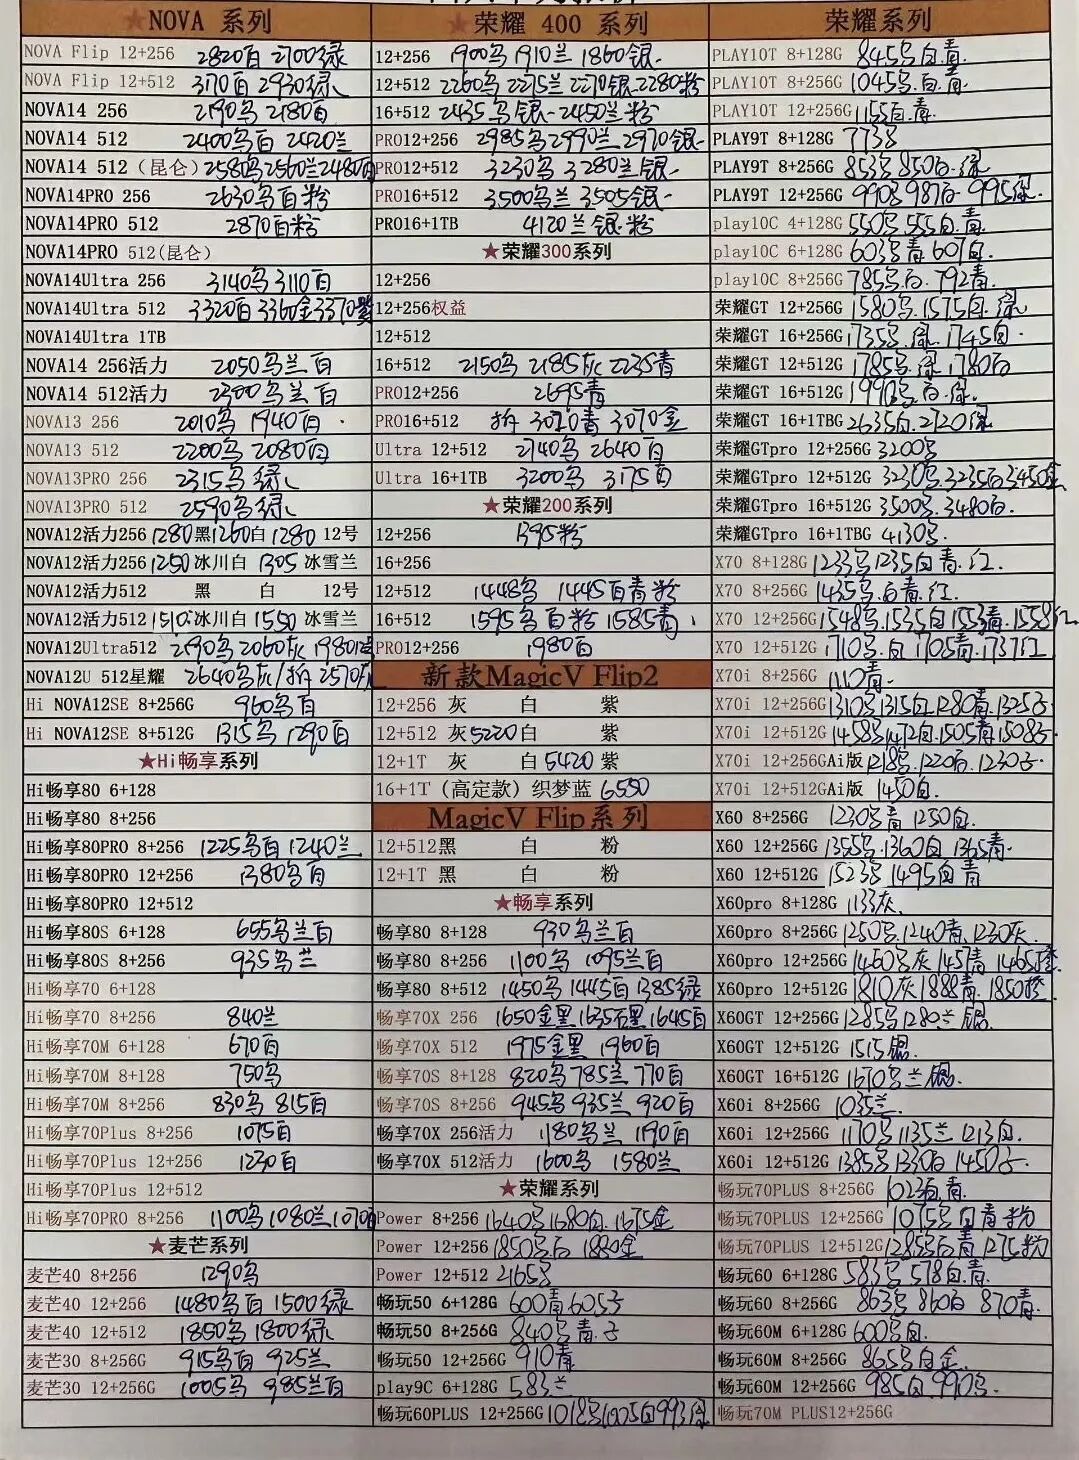 ★NOVA 系列
NOVA Flip 12+256 2820白 2700绿
NOVA Flip 12+512 3170白 2930绿
NOVA14 256 2190乌 2180白
NOVA14 512 2400乌白 2420兰
NOVA14 512（昆仑）2580乌2560兰2480白
NOVA14PRO 256 2630乌白粉
NOVA14PRO 512 2870白粉
NOVA14PRO 512(昆仑)
NOVA14Ultra 256 3140乌 3110白
NOVA14Ultra 512 3320白 3360金3370紫
NOVA14Ultra 1TB
NOVA14 256活力 2050乌兰白
NOVA14 512活力 2300乌兰白
NOVA13 256 2010乌 1940白
NOVA13 512 2200乌 2080白
NOVA13PRO 256 2315乌绿
NOVA13PRO 512 2590乌绿
NOVA12活力256 1280黑1260白1280 12号
NOVA12活力256 1250冰川白 1305冰雪兰
NOVA12活力512 黑 白 12号
NOVA12活力512 1510冰川白 1550冰雪兰
NOVA12Ultra512 2060灰
NOVA12U 512星耀 2640乌灰/拆 2570灰
Hi NOVA12SE 8+256G 960乌白
Hi NOVA12SE 8+512G 1315乌 1290白
★Hi畅享系列
Hi畅享80 6+128
Hi畅享80 8+256
Hi畅享80PRO 8+256 1225乌白 1240兰
Hi畅享80PRO 12+256 1380乌白
Hi畅享80PRO 12+512
Hi畅享80S 6+128 655乌兰白
Hi畅享80S 8+256 935乌兰
Hi畅享70 6+128
Hi畅享70 8+256 840兰
Hi畅享70M 6+128 670白
Hi畅享70M 8+128 750乌
Hi畅享70M 8+256 830乌 815白
Hi畅享70Plus 8+256 1075白
Hi畅享70Plus 12+256 1230白
Hi畅享70Plus 12+512
Hi畅享70PRO 8+256 1100乌1080兰1070白
★麦芒系列
麦芒40 8+256 1290乌
麦芒40 12+256 1480乌白 1500绿
麦芒40 12+512 1850乌 1800绿
麦芒30 8+256G 915乌白 925兰
麦芒30 12+256G 1005乌 985兰白
★荣耀 400 系列
12+256 1900乌 1910兰 1860银
12+512 2260乌 2275兰 2270银 2280粉
16+512 2435乌银 2450兰粉
PRO12+256 2985乌2990兰2970银
PRO12+512 3230乌 3280兰银
PRO16+512 3500乌兰 3505银
PRO16+1TB 4120兰银粉
★荣耀300系列
12+256
12+256权益
12+512
16+512 2150乌 2185灰 2235青
PRO12+256 2695青
PRO16+512 拆 3070青 3070金
Ultra 12+512 2740乌 2640白
Ultra 16+1TB 3200乌 3175白
★荣耀200系列
12+256 1395粉
16+256
12+512 1448乌 1445白青粉
16+512 1595乌白粉 1585青
PRO12+256 1980白
新款MagicV Flip2
12+256 灰 白 紫
12+512 灰5220白 紫
12+1T 灰 白5420紫
16+1T（高定款）织梦蓝 6550
MagicV Flip系列
12+512黑 白 粉
12+1T 黑 白 粉
★畅享系列
畅享80 8+128 930乌兰白
畅享80 8+256 1100乌 1095兰白
畅享80 8+512 1450乌 1445白 1385绿
畅享70X 256 1650金黑 1635石黑 1645白
畅享70X 512 1975金黑 1960白
畅享70S 8+128 820乌785兰 770白
畅享70S 8+256 945乌 935兰 920白
畅享70X 256活力 1180乌兰 1190白
畅享70X 512活力 1600乌 1580兰
★荣耀系列
Power 8+256 1640乌1680白 1675金
Power 12+256 1850乌白 1880金
Power 12+512 2165乌
畅玩50 6+128G 600青 605子
畅玩50 8+256G 840乌青子
畅玩50 12+256G 910青
play9C 6+128G 583兰
畅玩60PLUS 12+256G 1018乌1005白993绿
荣耀系列
PLAY10T 8+128G 845乌白青
PLAY10T 8+256G 1045乌白青
PLAY10T 12+256G 1155白青
PLAY9T 8+128G 773乌
PLAY9T 8+256G 853乌 850白绿
PLAY9T 12+256G 990乌 987白 995绿
play10C 4+128G 550乌 555白青
play10C 6+128G 603乌青 607白
play10C 8+256G 785乌白 792青
荣耀GT 12+256G 1580乌 1575白绿
荣耀GT 16+256G 1735乌绿 1745白
荣耀GT 12+512G 1785乌绿 1780白
荣耀GT 16+512G 1990乌白绿
荣耀GT 16+1TBG 2635白 2720绿
荣耀GTpro 12+256G 3200乌
荣耀GTpro 12+512G 3230乌3235白3450金
荣耀GTpro 16+512G 3500乌 3480白
荣耀GTpro 16+1TBG 4130乌
X70 8+128G 1233乌1235白青红
X70 8+256G 1435乌白青红
X70 12+256G 1548乌1535白1553青1558红
X70 12+512G 1710乌白 1705青 1737红
X70i 8+256G 1110青
X70i 12+256G 1310乌1315白1280青1325子
X70i 12+512G 1458乌1472白1505青1508子
X70i 12+256GAi版 1218乌1220白1230子
X70i 12+512GAi版 1450白
X60 8+256G 1230乌青 1250白
X60 12+256G 1355乌1360白 1365青
X60 12+512G 1523乌 1495白青
X60pro 8+128G 1133灰
X60pro 8+256G 1250乌1240青1230灰
X60pro 12+256G 1460乌灰 1457青 1465橙
X60pro 12+512G 1810灰 1888青 1850橙
X60GT 12+256G 1285乌1280兰银
X60GT 12+512G 1515银
X60GT 16+512G 1670乌兰银
X60i 8+256G 1035兰
X60i 12+256G 1170乌1135兰1213白
X60i 12+512G 1385乌1330白1450子
畅玩70PLUS 8+256G 1023白青
畅玩70PLUS 12+256G 1075乌白青粉
畅玩70PLUS 12+512G 1285乌白青1275粉
畅玩60 6+128G 583乌 578白青
畅玩60 8+256G 863乌 860白 870青
畅玩60M 6+128G 600乌白
畅玩60M 8+256G 865乌白金
畅玩60M 12+256G 985白 990乌
畅玩70M PLUS12+256G